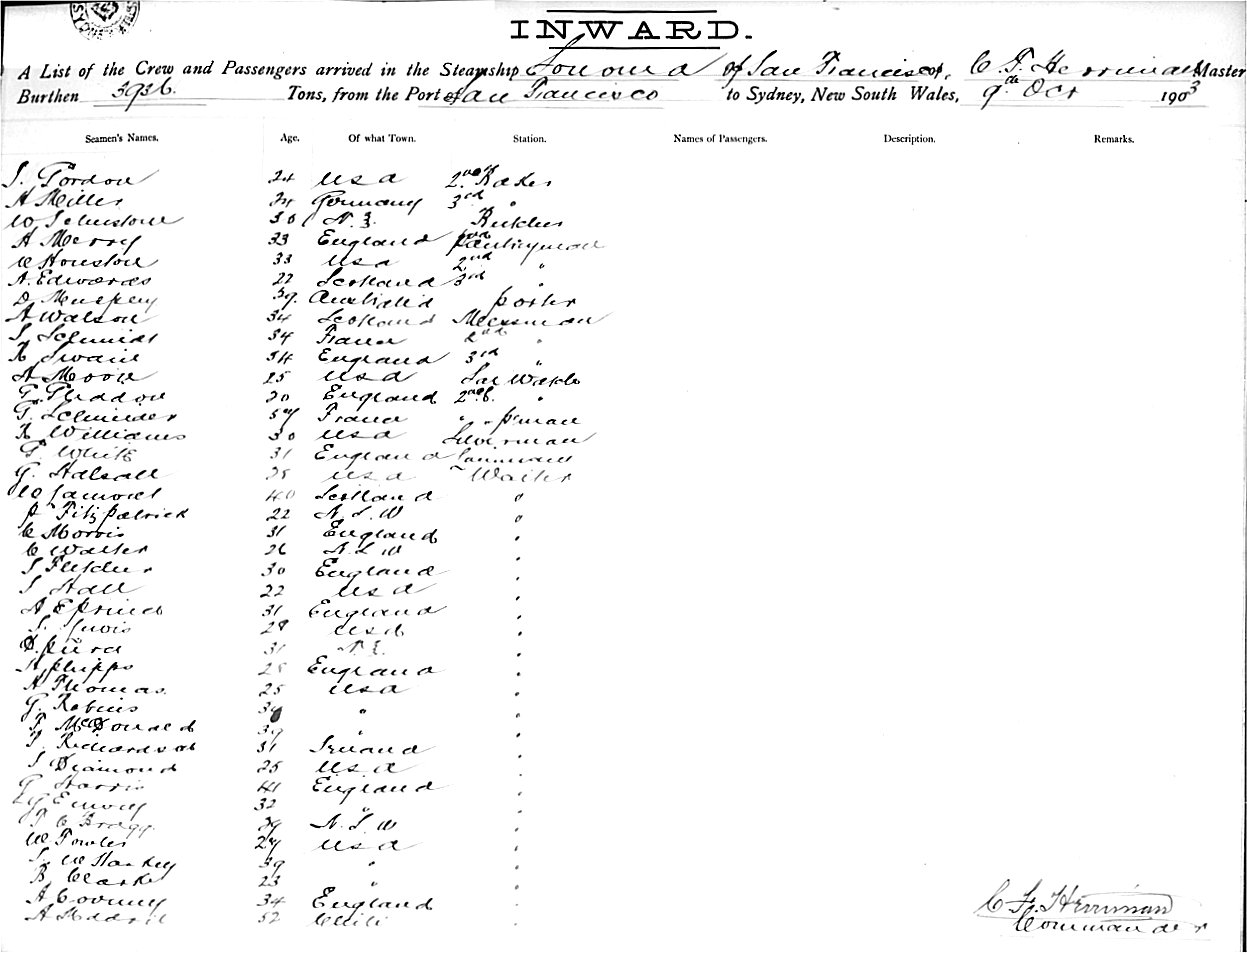 INWARD.
A List of the Crew and Passengers arrived in the Steamship Sonoma of San Francisco, C F. Herriman Master
Burthen 3936. Tons, from the Port of San Francisco to Sydney, New South Wales, 9th Oct 1903
Seamen's Names. Age. Of what Town. Station. Names of Passengers. Description. Remarks.
S. Gordon 24 USA 2nd Baker
A Miller 24 Germany 3rd "
W Johnstone 30 N.Z. Butcher
A Merry 33 England Pantryman
Houston 33 USA 2nd "
A. Edwards 22 Scotland 3rd "
D Murphy 39. Australia porter
A Watson 34 Scotland Messman
S Schmidt 34 France 2nd "
R Swain 34 England 3rd "
A Moore 25 USA
20 England "
G. Schneider France " "
R Williams 30 USA Silverman
F. White 31 England
G. Halsall 28 USA Waiter
W 40 Scotland "
P Fitzpatrick 22 N.S.W "
C Morris 31 England "
C Walter 26 N.S.W "
S Fletcher 30 England "
S Hall 22 USA "
A 31 England "
S. Lewis 28 USA "
D. 31 N.Z. "
A phipps 28 England "
A Thomas. 25 USA "
G. Robins " "
F McDonald " "
T. Richardson 31 Ireland "
S Diamond 25 USA "
G Harris 41 England "
Emory 32 " "
T C N.S.W "
W Fowler 27 USA "
S. W 39 " "
B Clarke 23 " "
A 34 England "
A 52 Chili "
C. F. Herriman
Commander